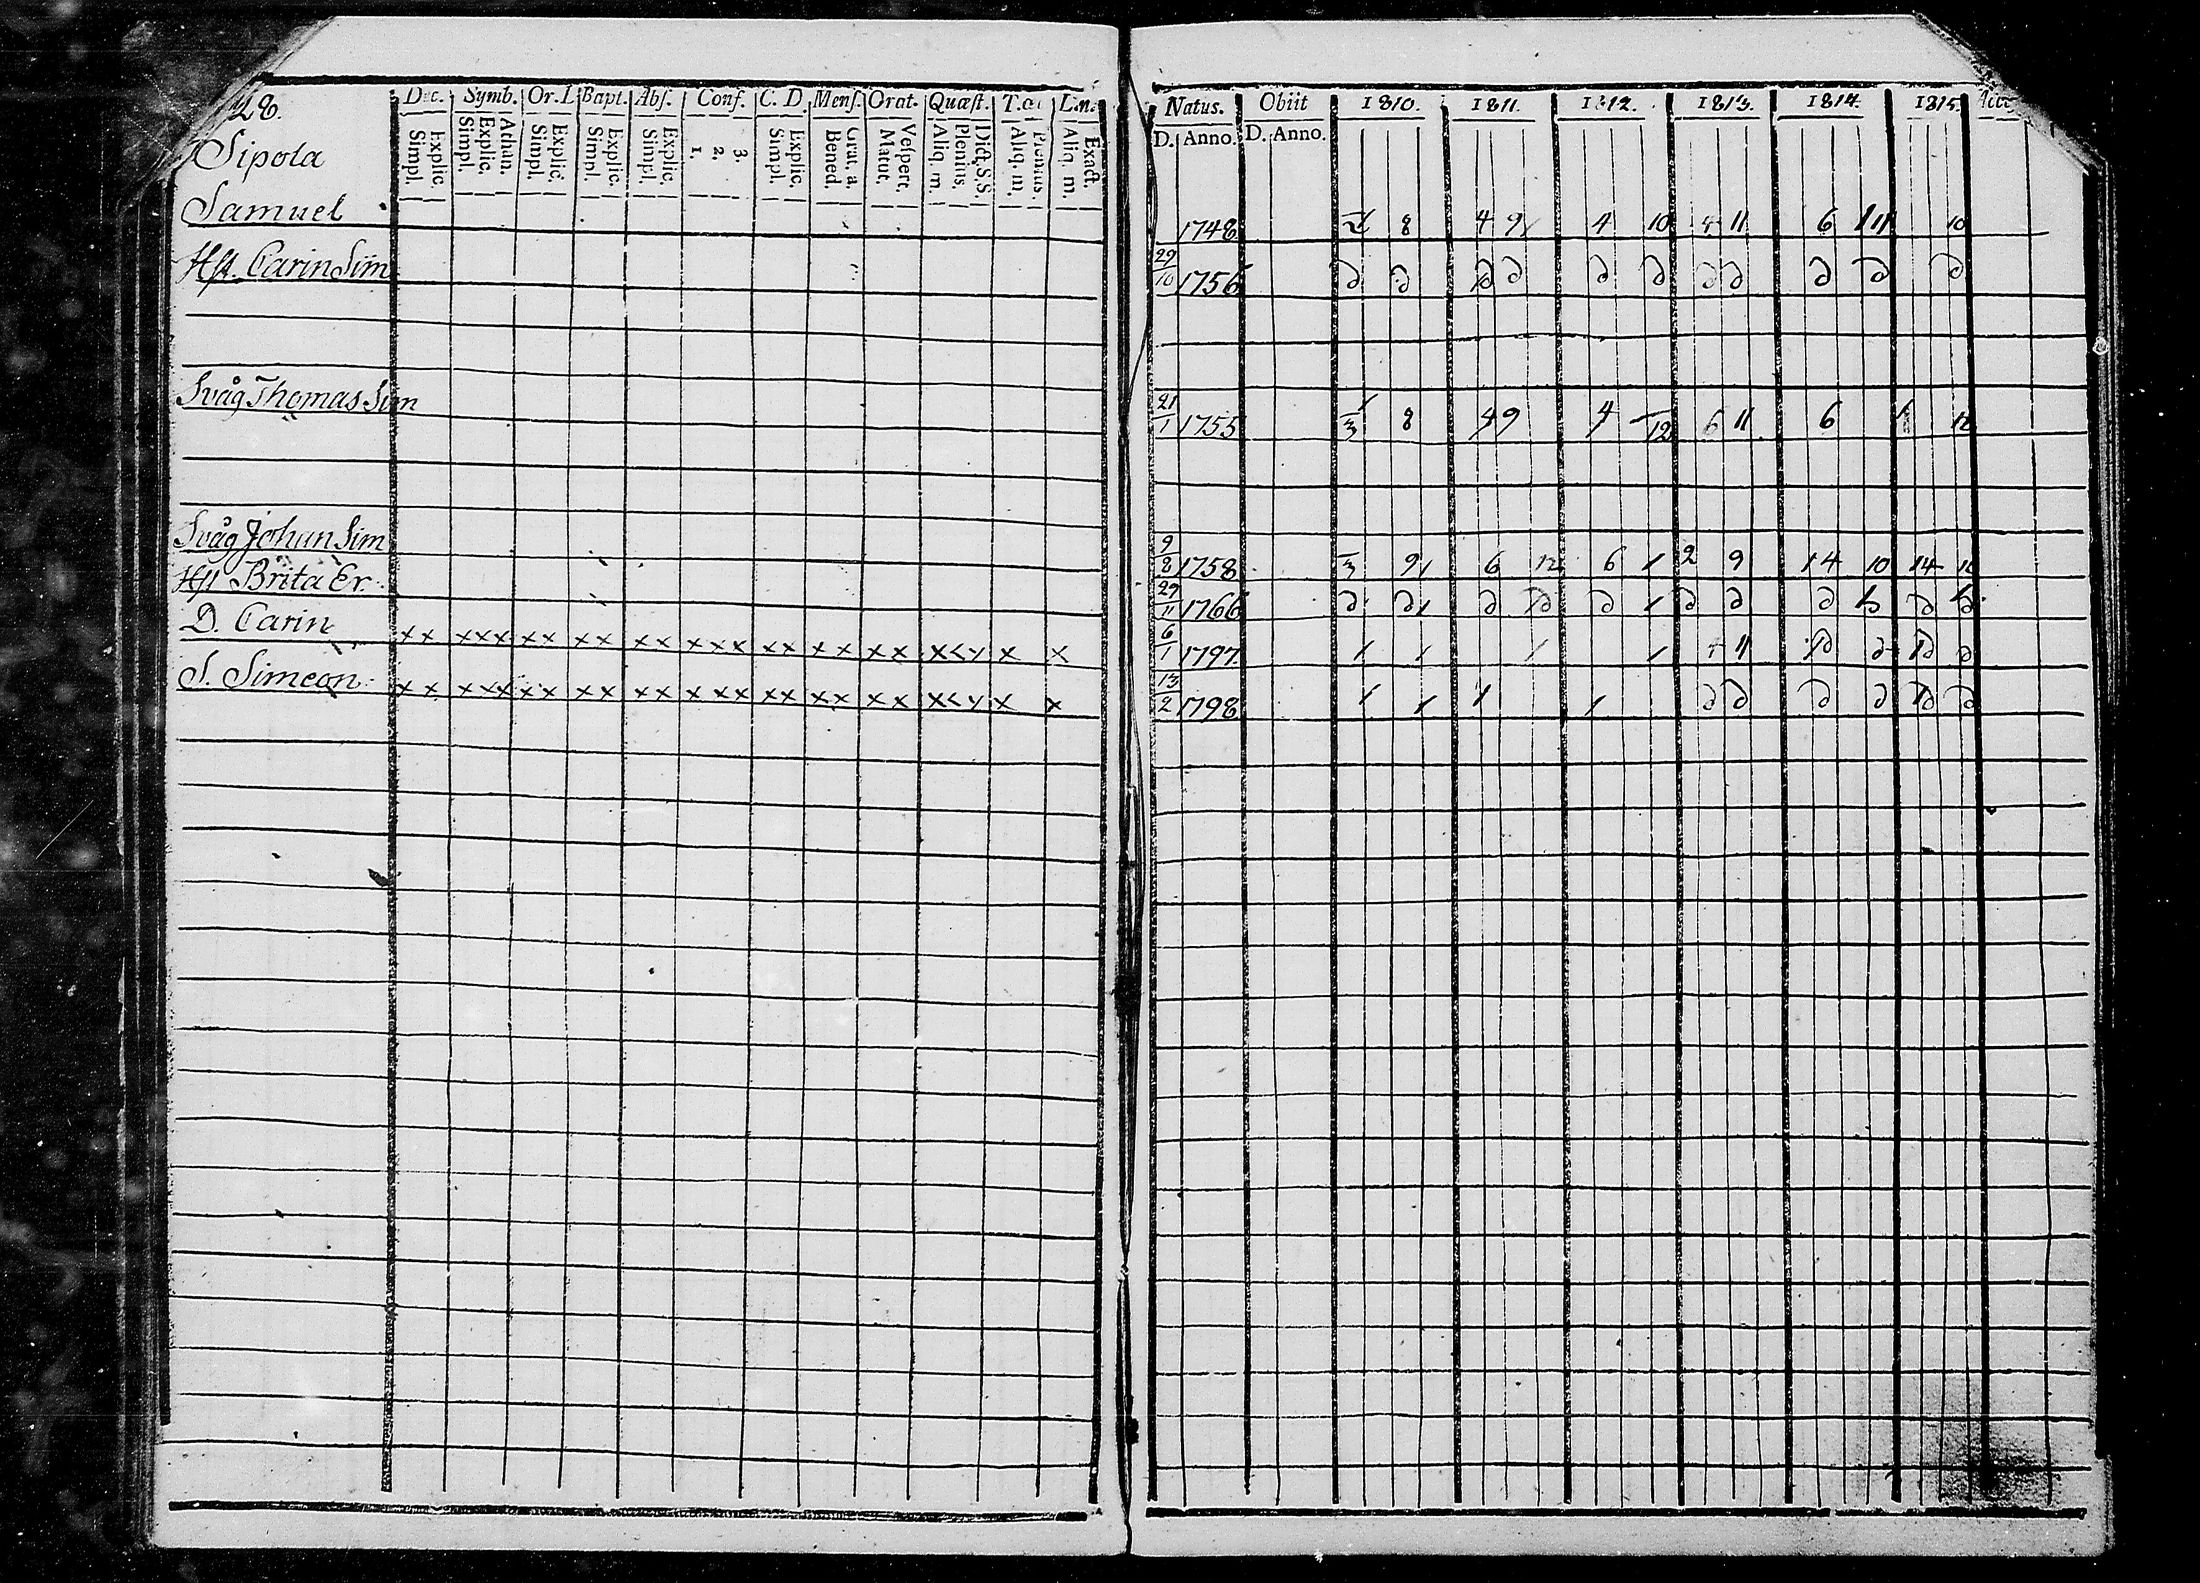 28.
Dec. Symb. Or. D Bapt. Abs. Conf. C. D. Mens. Orat. Quæst. T.a
Simpl. Explic. Simpl. Explic. Athan. Simpl. Explic. Simpl. Explic. Simpl. Explic. 1. 2. 3. Simpl. Explic. Bened. Grat. a. Matut. Vespert. Aliq. m. Plenius. Dict. S.S. Aliq. m. Plenius. Aliq. m. Exact.
Natus. Obiit 1810. 1811. 1812. 1813. 1814. 1815.
D. Anno. D. Anno.
Sipola
Samuel 1748 8 4 9 4 10 4 11 6 10
Hst. Carin Sim 29/10 1756 D D D D D D D D D D D
Svåg Thomas Sim 21/1 1755 8 4 9 4 12 6 11 6
Svåg Johan Sim 9/8 1758 3 9 6 12 6 1 2 9 14 10 14
Hst Brita Er. 29/11 1766 D D D D D D D D
D. Carin x x x x x x x x x x x x x x x x x x x x x x x x x 6/1 1797 4 11
S. Simeon x x x x x x x x x x x x x x x x x x x x x x x x x 13/2 1798 D D D D D D